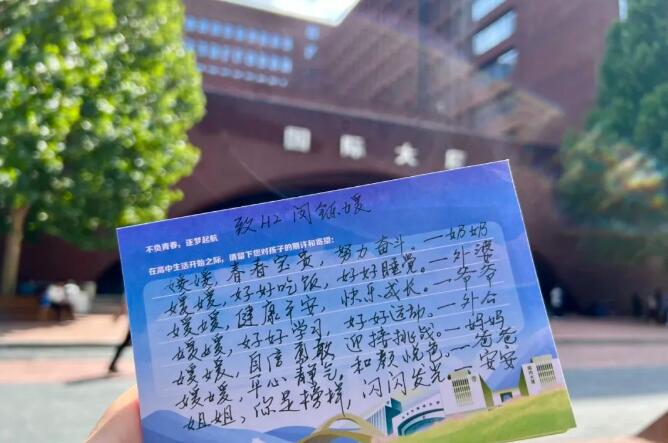 国际大厦
致H2闵铄媛
不负青春,逐梦起航
在高中生活开始之际,请留下您对孩子的期许和寄望:
媛媛,青春宝贵,努力奋斗。—奶奶
媛媛,好好吃饭,好好睡觉。—外婆
媛媛,健康平安,快乐成长。—爷爷
媛媛,好好学习,好好运动。—外公
媛媛,自信勇敢,迎接挑战。—妈妈
媛媛,平心静气,和颜悦色。—爸爸
姐姐,你是榜样,闪闪发光。—安安